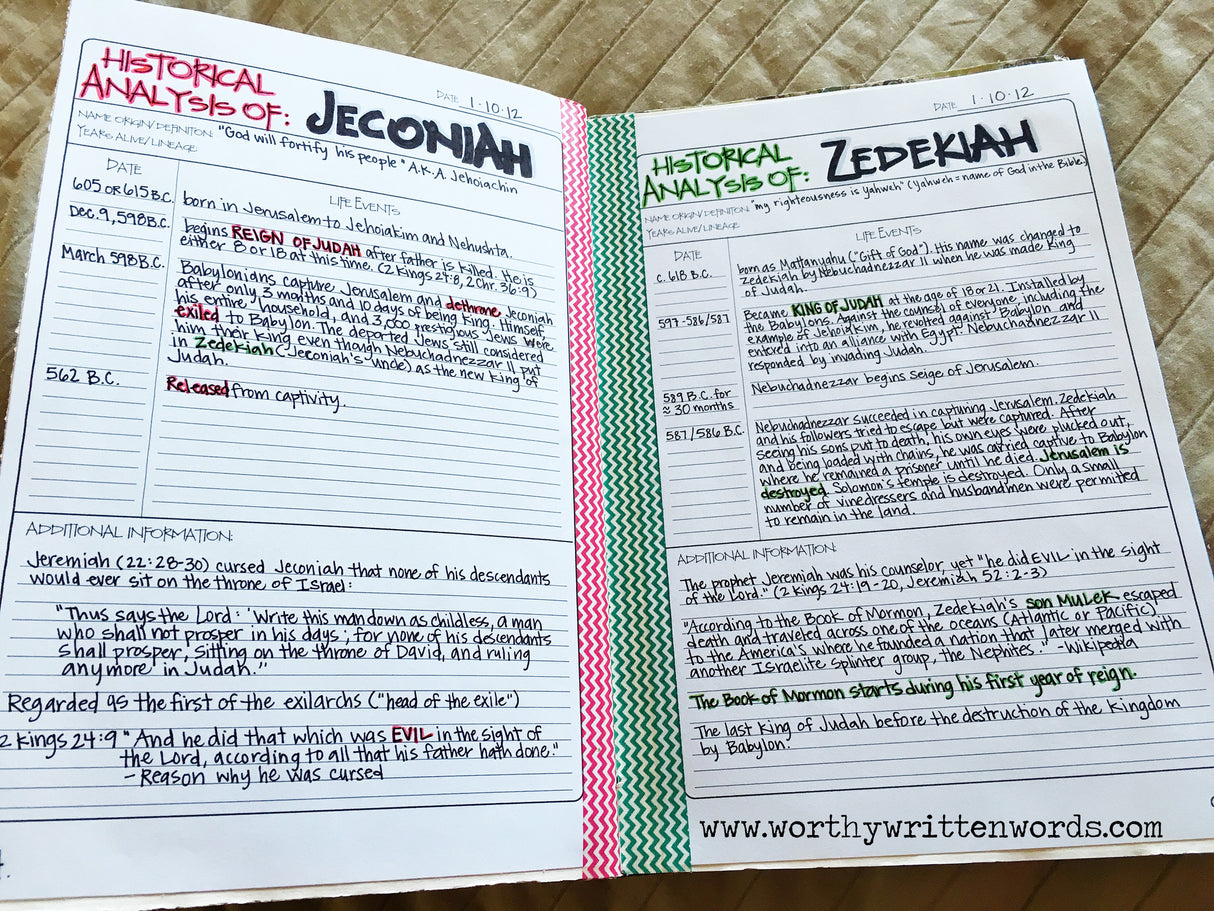 HISTORICAL
ANALYSIS OF: JECONIAH
DATE 1.10.12
NAME ORIGIN/DEFINITON: "God will fortify his people" A.K.A. Jehoiachin
YEARS ALIVE/LINEAGE:
DATE
LIFE EVENTS
605 OR 615 B.C.
born in Jerusalem to Jehoiakim and Nehushta.
Dec. 9, 598 B.C.
begins REIGN OF JUDAH after father is killed. He is
either 8 or 18 at this time. (2 Kings 24:8, 2 Chr. 36:9)
March 598 B.C.
Babylonians capture Jerusalem and dethrone Jeconiah
after only 3 months and 10 days of being King. Himself,
his entire household, and 3,000 prestigious Jews were
exiled to Babylon. The deported Jews still considered
him their King even though Nebuchadnezzar II put
in Zedekiah (Jeconiah's uncle) as the new King of
Judah.
562 B.C.
Released from captivity.
ADDITIONAL INFORMATION:
Jeremiah (22:28-30) cursed Jeconiah that none of his descendants
would ever sit on the throne of Israel:
"Thus says the Lord: 'Write this man down as childless, a man
who shall not prosper in his days; for none of his descendants
shall prosper, sitting on the throne of David, and ruling
anymore in Judah.'"
Regarded as the first of the exilarchs ("head of the exile")
2 Kings 24:9 "And he did that which was EVIL in the sight of
the Lord, according to all that his father hath done."
- Reason why he was cursed
HISTORICAL
ANALYSIS OF: ZEDEKIAH
DATE 1.10.12
NAME ORIGIN/DEFINITON: "my righteousness is Yahweh" (Yahweh = name of God in the Bible.)
YEARS ALIVE/LINEAGE
DATE
LIFE EVENTS
c. 618 B.C.
born as Mattanyahu ("Gift of God"). His name was changed to
Zedekiah by Nebuchadnezzar II when he was made King
of Judah.
597-586/587
Became KING OF JUDAH at the age of 18 or 21. Installed by
the Babylons. Against the counsel of everyone, including the
example of Jehoiakim, he revolted against Babylon and
entered into an alliance with Egypt. Nebuchadnezzar II
responded by invading Judah.
589 B.C. for
≈ 30 months
Nebuchadnezzar begins Seige of Jerusalem.
587/586 B.C.
Nebuchadnezzar succeeded in capturing Jerusalem. Zedekiah
and his followers tried to escape but were captured. After
seeing his sons put to death, his own eyes were plucked out,
and being loaded with chains, he was carried captive to Babylon
where he remained a prisoner until he died. Jerusalem is
destroyed. Solomon's temple is destroyed. Only a small
number of vinedressers and husbandmen were permitted
to remain in the land.
ADDITIONAL INFORMATION:
The prophet Jeremiah was his counselor, yet "he did EVIL in the sight
of the Lord." (2 Kings 24:19-20, Jeremiah 52:2-3)
"According to the Book of Mormon, Zedekiah's son MULEK escaped
death and traveled across one of the oceans (Atlantic or Pacific)
to the America's where he founded a nation that later merged with
another Israelite splinter group, the Nephites." -Wikipedia
The Book of Mormon starts during his first year of reign.
The last King of Judah before the destruction of the Kingdom
by Babylon.
www.worthywrittenwords.com